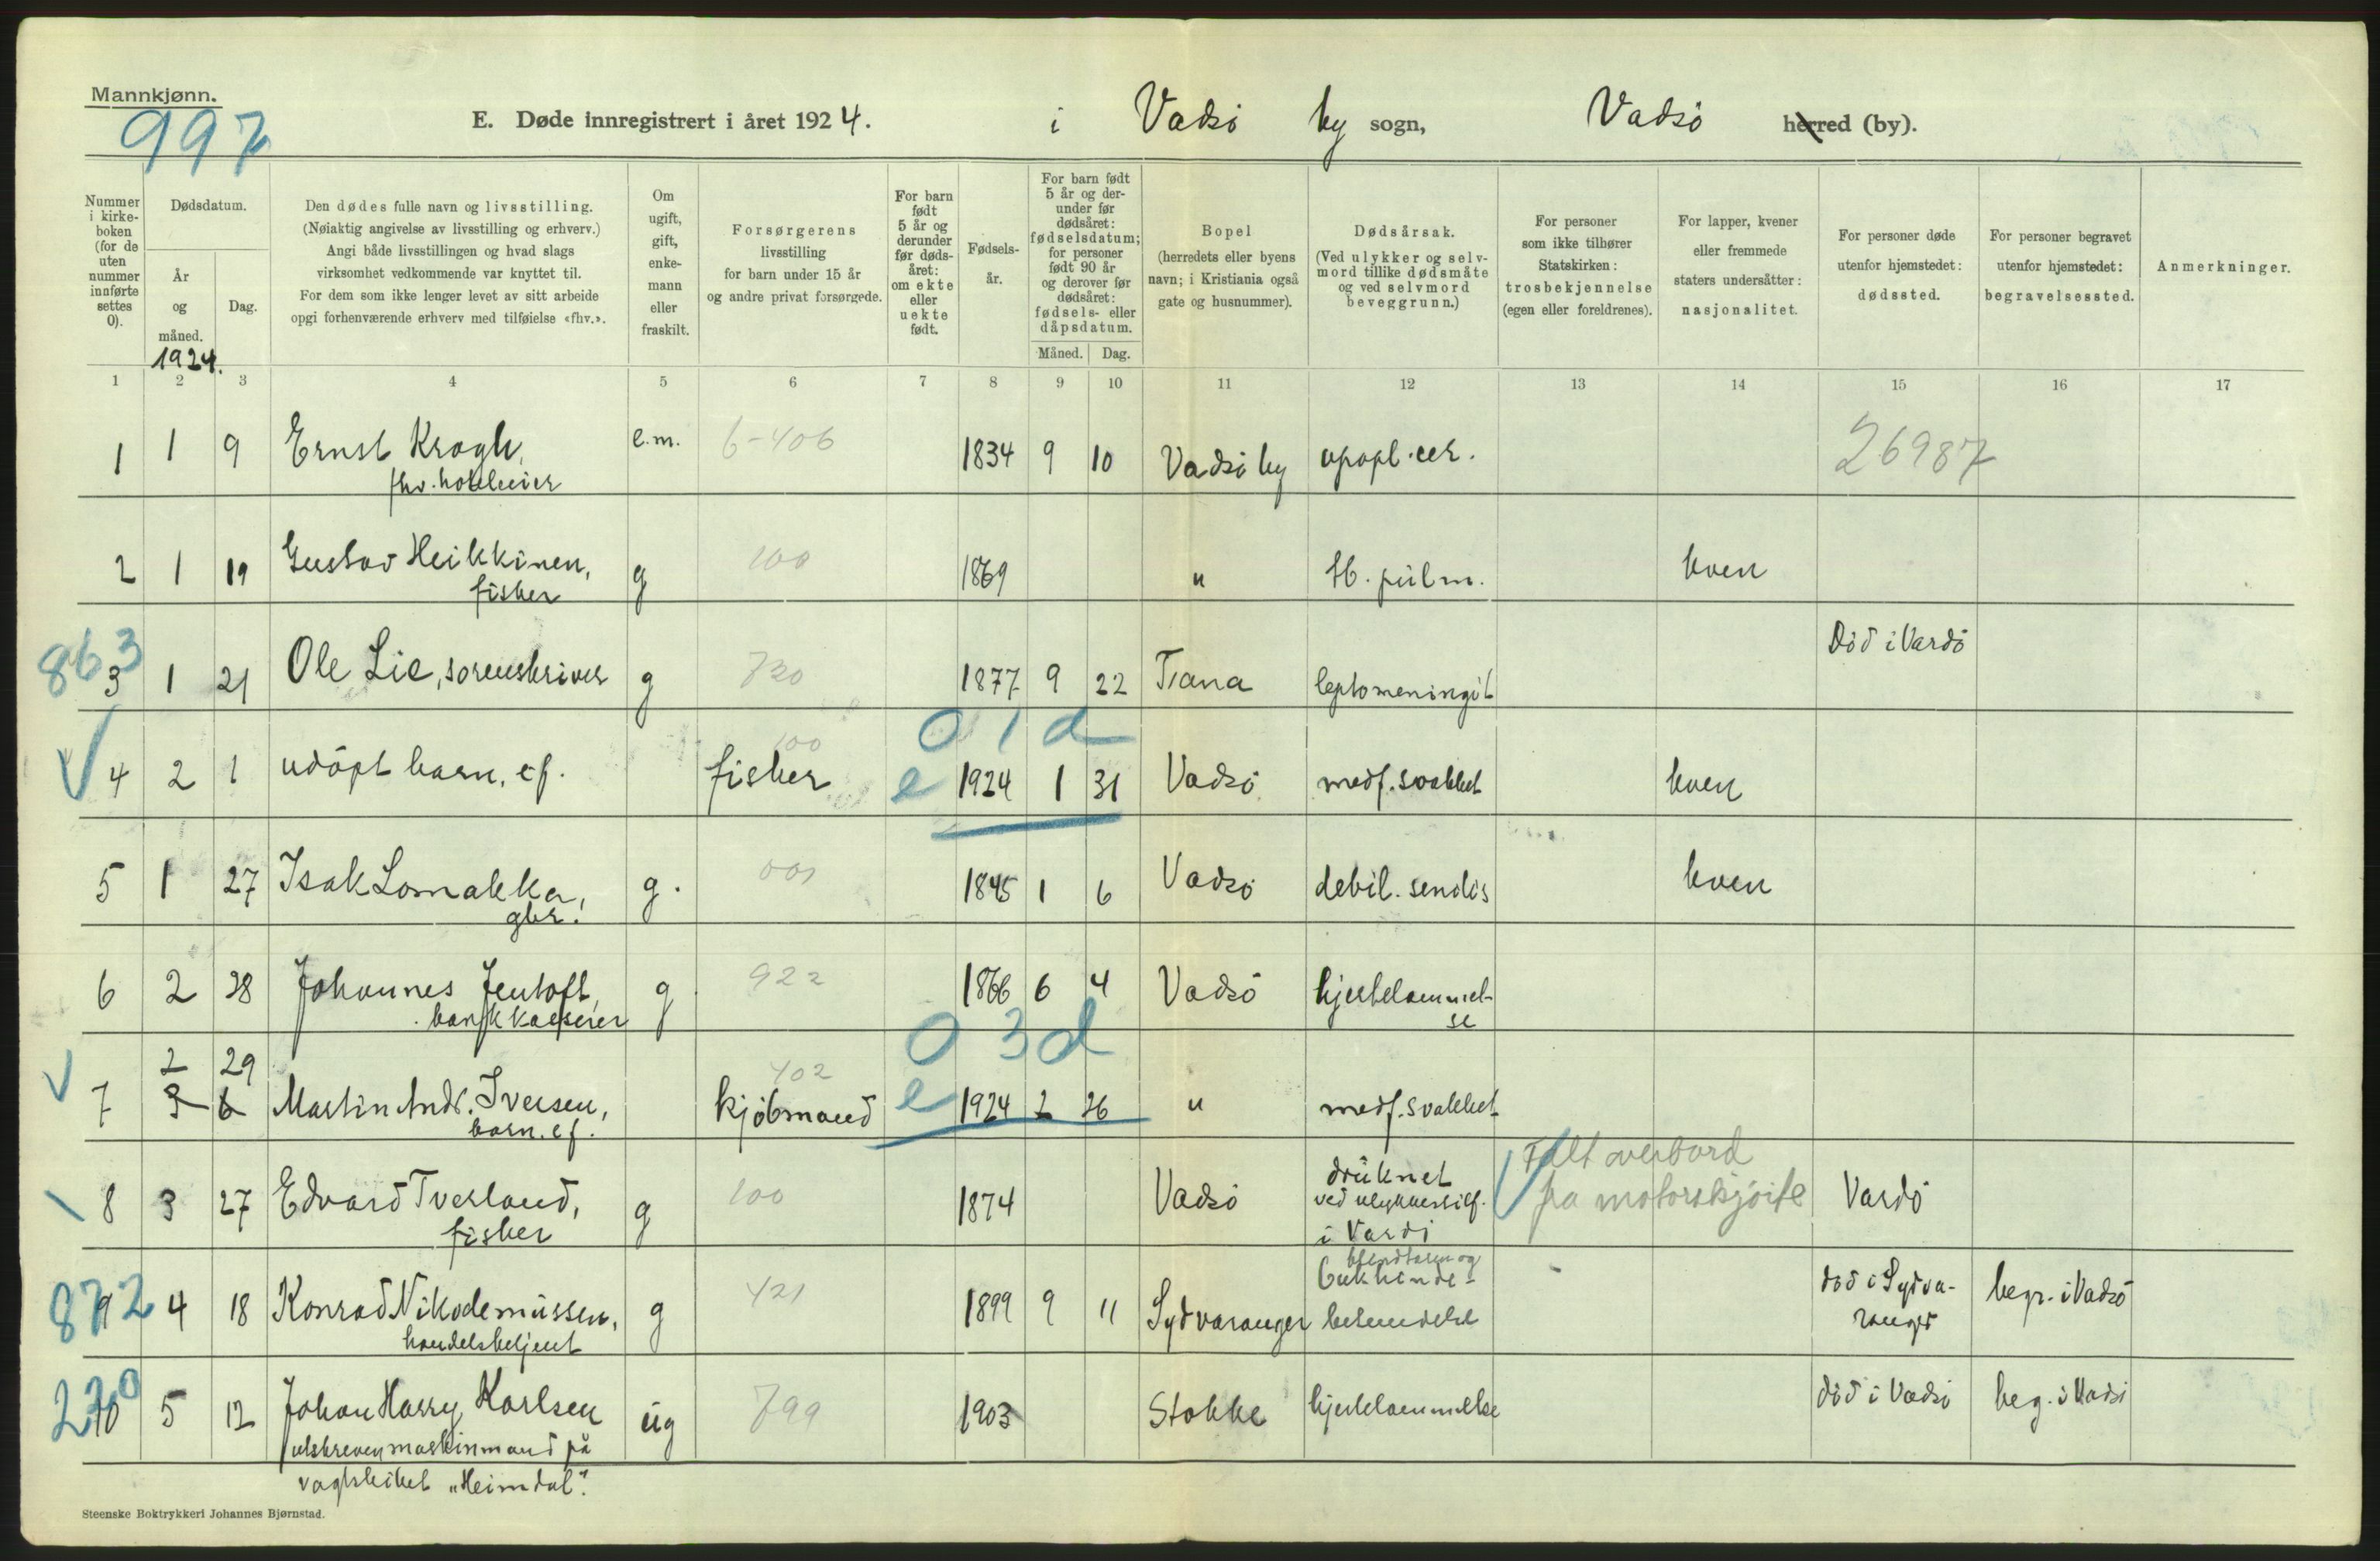 Mannkjønn.
997
E. Døde innregistrert i året 1924. i Vadsø by sogn, Vadsø herred (by).
Nummer i kirke-boken (for de uten nummer innførte settes 0).
Dødsdatum.
År og måned.
Dag.
1924.
Den dødes fulle navn og livsstilling.
(Nøiaktig angivelse av livsstilling og erhverv.)
Angi både livsstillingen og hvad slags
virksomhet vedkommende var knyttet til.
For dem som ikke lenger levet av sitt arbeide
opgi forhenværende erhverv med tilføielse «fhv.».
Om ugift, gift, enke-mann eller fraskilt.
Forsørgerens
livsstilling
for barn under 15 år
og andre privat forsørgede.
For barn født 5 år og derunder før døds-året: om ekte eller uekte født.
Fødsels-år.
For barn født 5 år og der-under før dødsåret: fødselsdatum; for personer født 90 år og derover før dødsåret: fødsels- eller dåpsdatum.
Måned. Dag.
Bopel
(herredets eller byens
navn; i Kristiania også
gate og husnummer).
Dødsårsak.
(Ved ulykker og selv-
mord tillike dødsmåte
og ved selvmord
beveggrunn.)
For personer
som ikke tilhører
Statskirken:
trosbekjennelse
(egen eller foreldrenes).
For lapper, kvener
eller fremmede
staters undersåtter:
nasjonalitet.
For personer døde
utenfor hjemstedet:
dødssted.
For personer begravet
utenfor hjemstedet:
begravelsessted.
Anmerkninger.
1 2 3 4 5 6 7 8 9 10 11 12 13 14 15 16 17
1 1 9 Ernst Krogh, e.m. 6-406 1834 9 10 Vadsø by apopl. cer. 26987
fhv. hotelleier
2 1 19 Gustav Heikkinen, g 100 1869 " tb. pulm. kven
fisker
863
3 1 21 Ole Lie, sorenskriver g 730 1877 9 22 Tana leptomeningit Død i Vardø
0 1 d
4 2 1 udøpt barn, ef. fisker 100 e 1924 1 31 Vadsø medf. svakhet kven
5 1 27 Isak Lomakka, g. 001 1845 1 6 Vadsø debil. senilis kven
gbr.
6 2 28 Johannes Jentoft, g 922 1866 6 4 Vadsø hjertelammel-
bankkasserer se
0 3 d
2 29 402
7 3 6 Martin Andr. Iversen, kjøbmand e 1924 2 26 " medf. svakhet
barn. ef.
8 3 27 Edvard Tverland, g 100 1874 Vadsø druknet Falt overbord Vardø
fisker ved ulykkestilf. fra motorskjøite
i Vardø
872
9 4 18 Konrad Nikodemussen, g 421 1899 9 11 Sydvaranger Bukhinde- død i Sydva- begr. i Vadsø
handelsbetjent betendelse ranger
270
10 5 12 Johan Harry Karlsen ug 799 1903 Stokke hjertelammelse død i Vadsø beg. i Vadsø
utskreven maskinmand på
vagtskibet „Heimdal".
Steenske Boktrykkeri Johannes Bjørnstad.